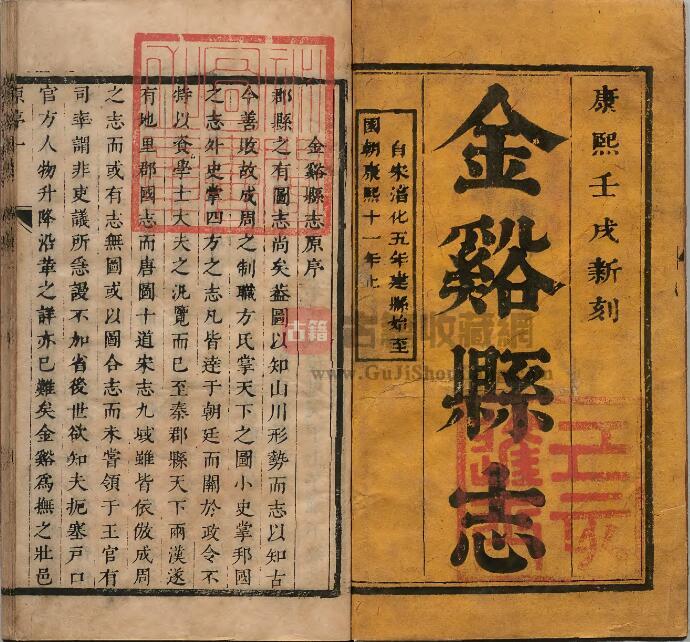 康熙壬戌新刻
金谿縣志
自宋湻化五年建縣始至
國朝康熙十一年止
金谿縣志原序
郡縣之有圖志尚矣葢圖以知山川形勢而志以知古
今善敗故成周之制職方氏掌天下之圖小史掌邦國
之志外史掌四方之志凡皆達于朝廷而關於政令不
特以資學士大夫之汎覽而已至秦郡縣天下兩漢遂
有地里郡國志而唐圖十道宋志九域雖皆依倣成周
之志而或有志無圖或以圖合志而未嘗領于王官有
司率謂非吏議所急謾不加省後世欲知夫扼塞戸口
官方人物升降沿革之詳亦已難矣金谿爲撫之壯邑
原序一
古籍
古籍收藏網